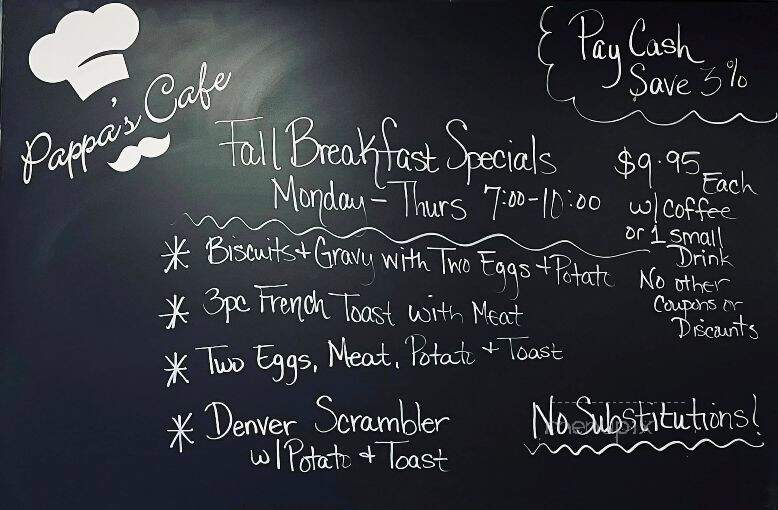 Pappa's Cafe
Pay Cash
Save 3%
Fall Breakfast Specials
Monday - Thurs 7:00-10:00
$9.95 Each
w/ coffee
or 1 small
Drink
No other
Coupons or
Discounts
* Biscuits + Gravy with Two Eggs + Potato
* 3pc French Toast with Meat
* Two Eggs, Meat, Potato + Toast
* Denver Scrambler
w/ Potato + Toast
No Substitutions!
menupix